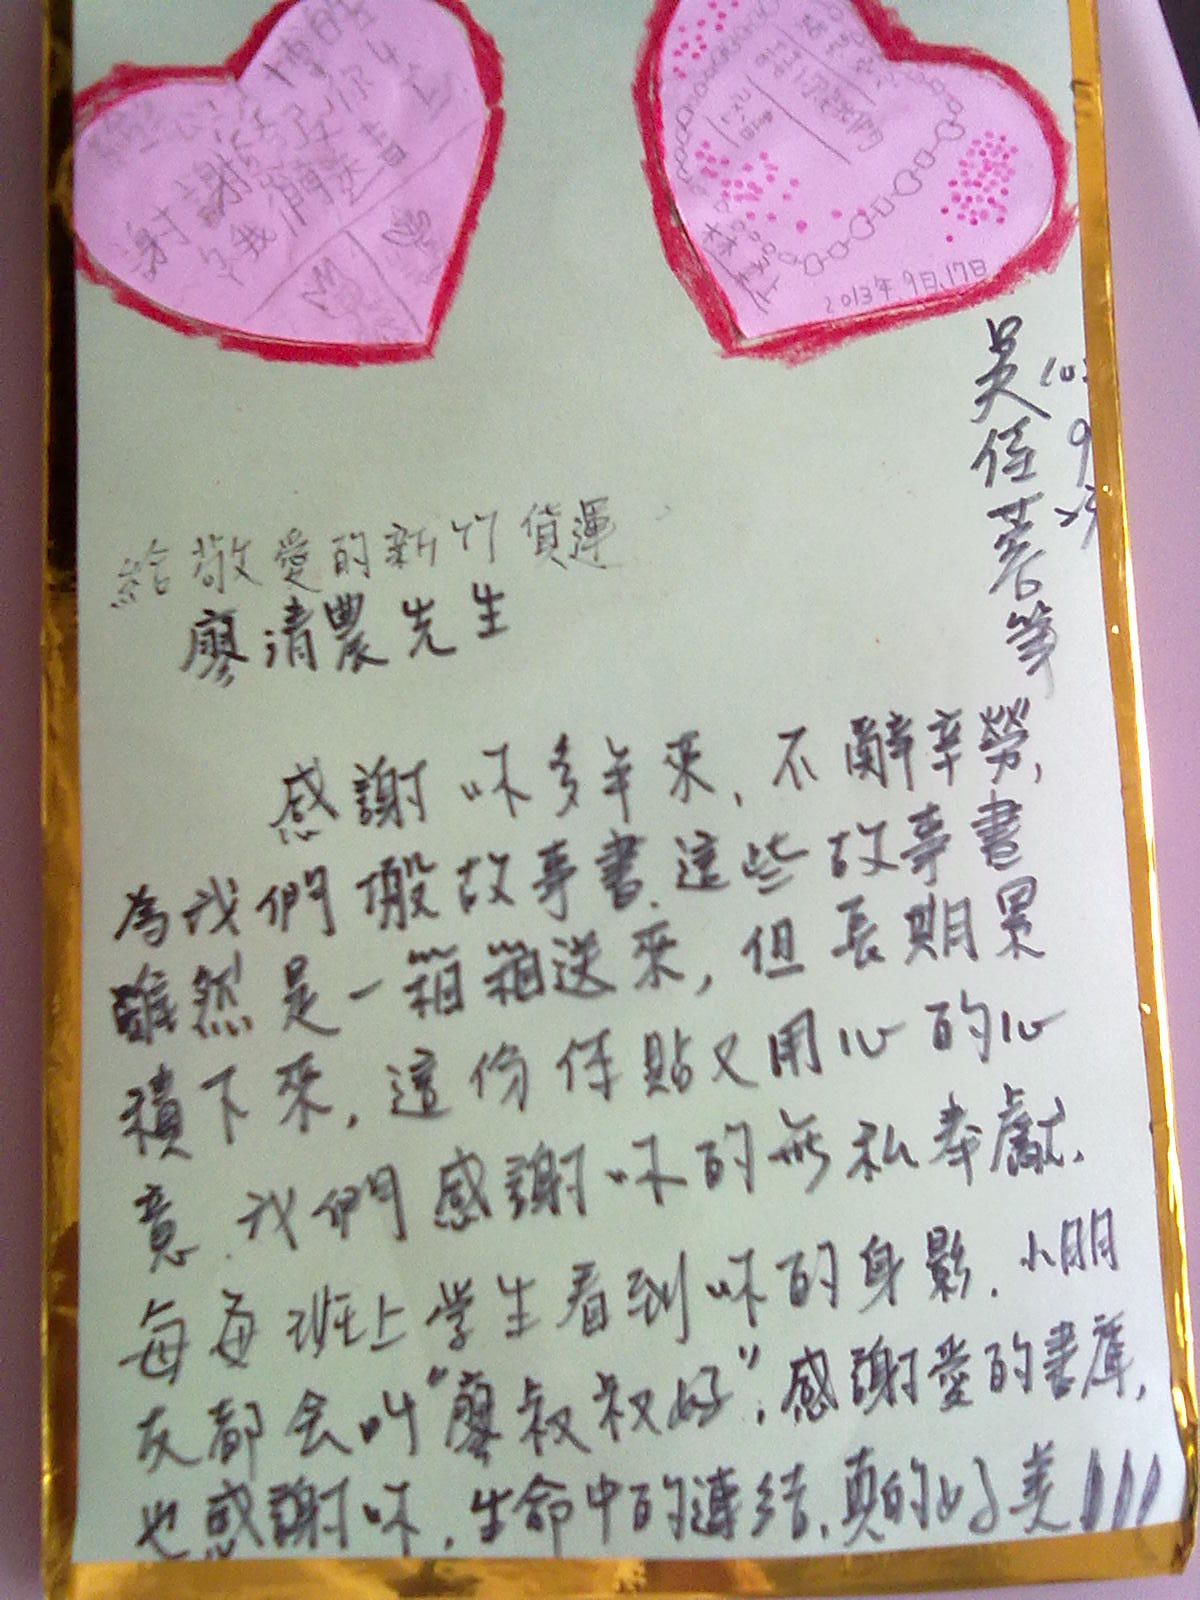 謝謝你
我們
2013年9月17日
吳佳蓉等
給敬愛的新竹貨運
廖清農先生
感謝你多年來,不辭辛勞,
為我們搬故事書.這些故事書
雖然是一箱箱送來,但長期累
積下來,這份体貼又用心的心
意.我們感謝你的無私奉獻.
每每班上學生看到你的身影.小朋
友都会叫"廖叔叔好".感謝愛的書庫,
也感謝你.生命中的連結.真的好美!!!